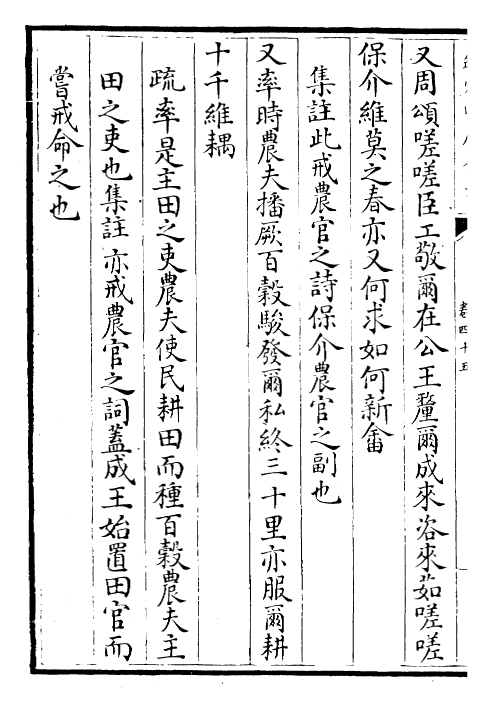 又周頌嗟嗟臣工敬爾在公王釐爾成來咨來茹嗟嗟
保介維莫之春亦又何求如何新畬
集註此戒農官之詩保介農官之副也
又率時農夫播厥百穀駿發爾私終三十里亦服爾耕
十千維耦
疏率是主田之吏農夫使民耕田而種百穀農夫主
田之吏也集註亦戒農官之詞蓋成王始置田官而
嘗戒命之也
卷四十五